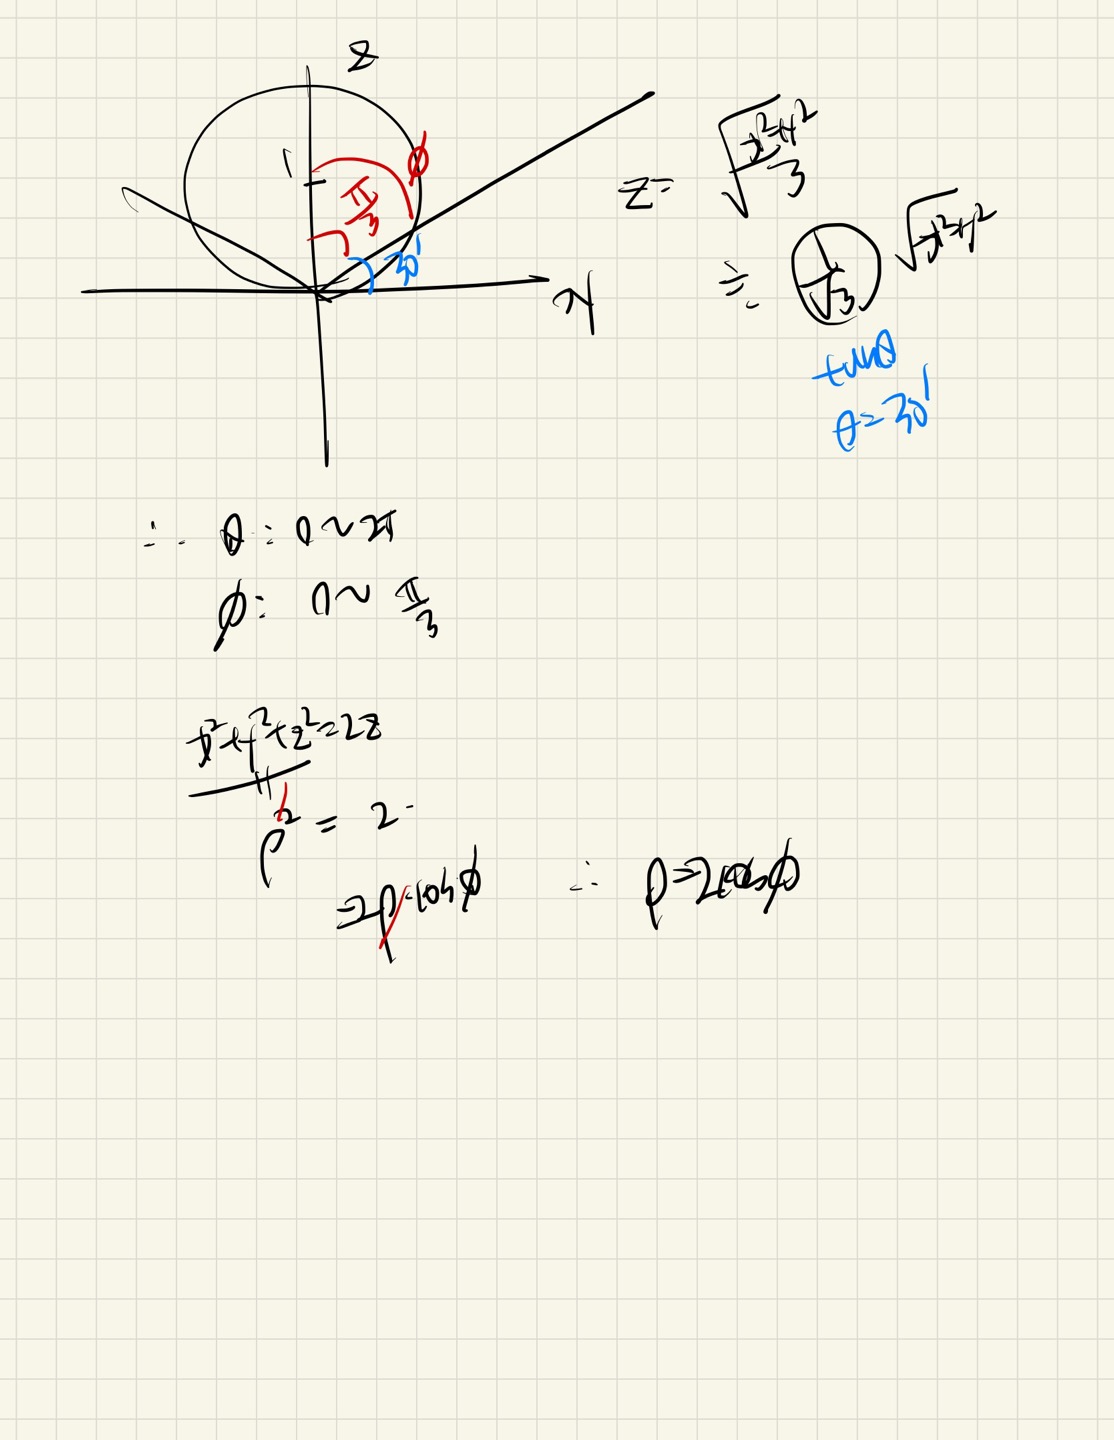 z
1
φ
π/3
30'
y
z = √((x²+y²)/3)
≒ 1/√3 √(x²+y²)
tanθ
θ = 30'
∴ θ : 0 ~ 2π
φ : 0 ~ π/3
x²+y²+z² = 2z
ρ² = 2·
= 2ρ·cosφ ∴ ρ = 2cosφ